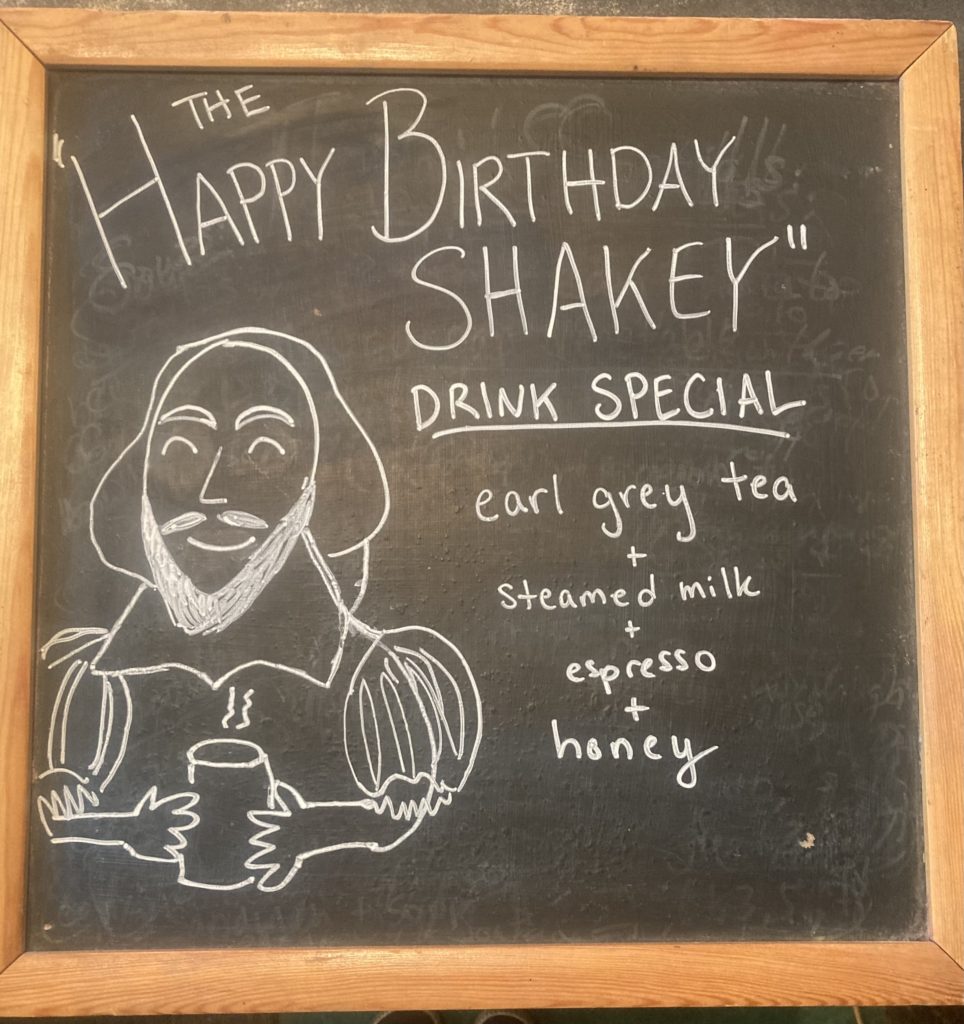 THE
"HAPPY BIRTHDAY
SHAKEY"
DRINK SPECIAL
earl grey tea
+
steamed milk
+
espresso
+
honey